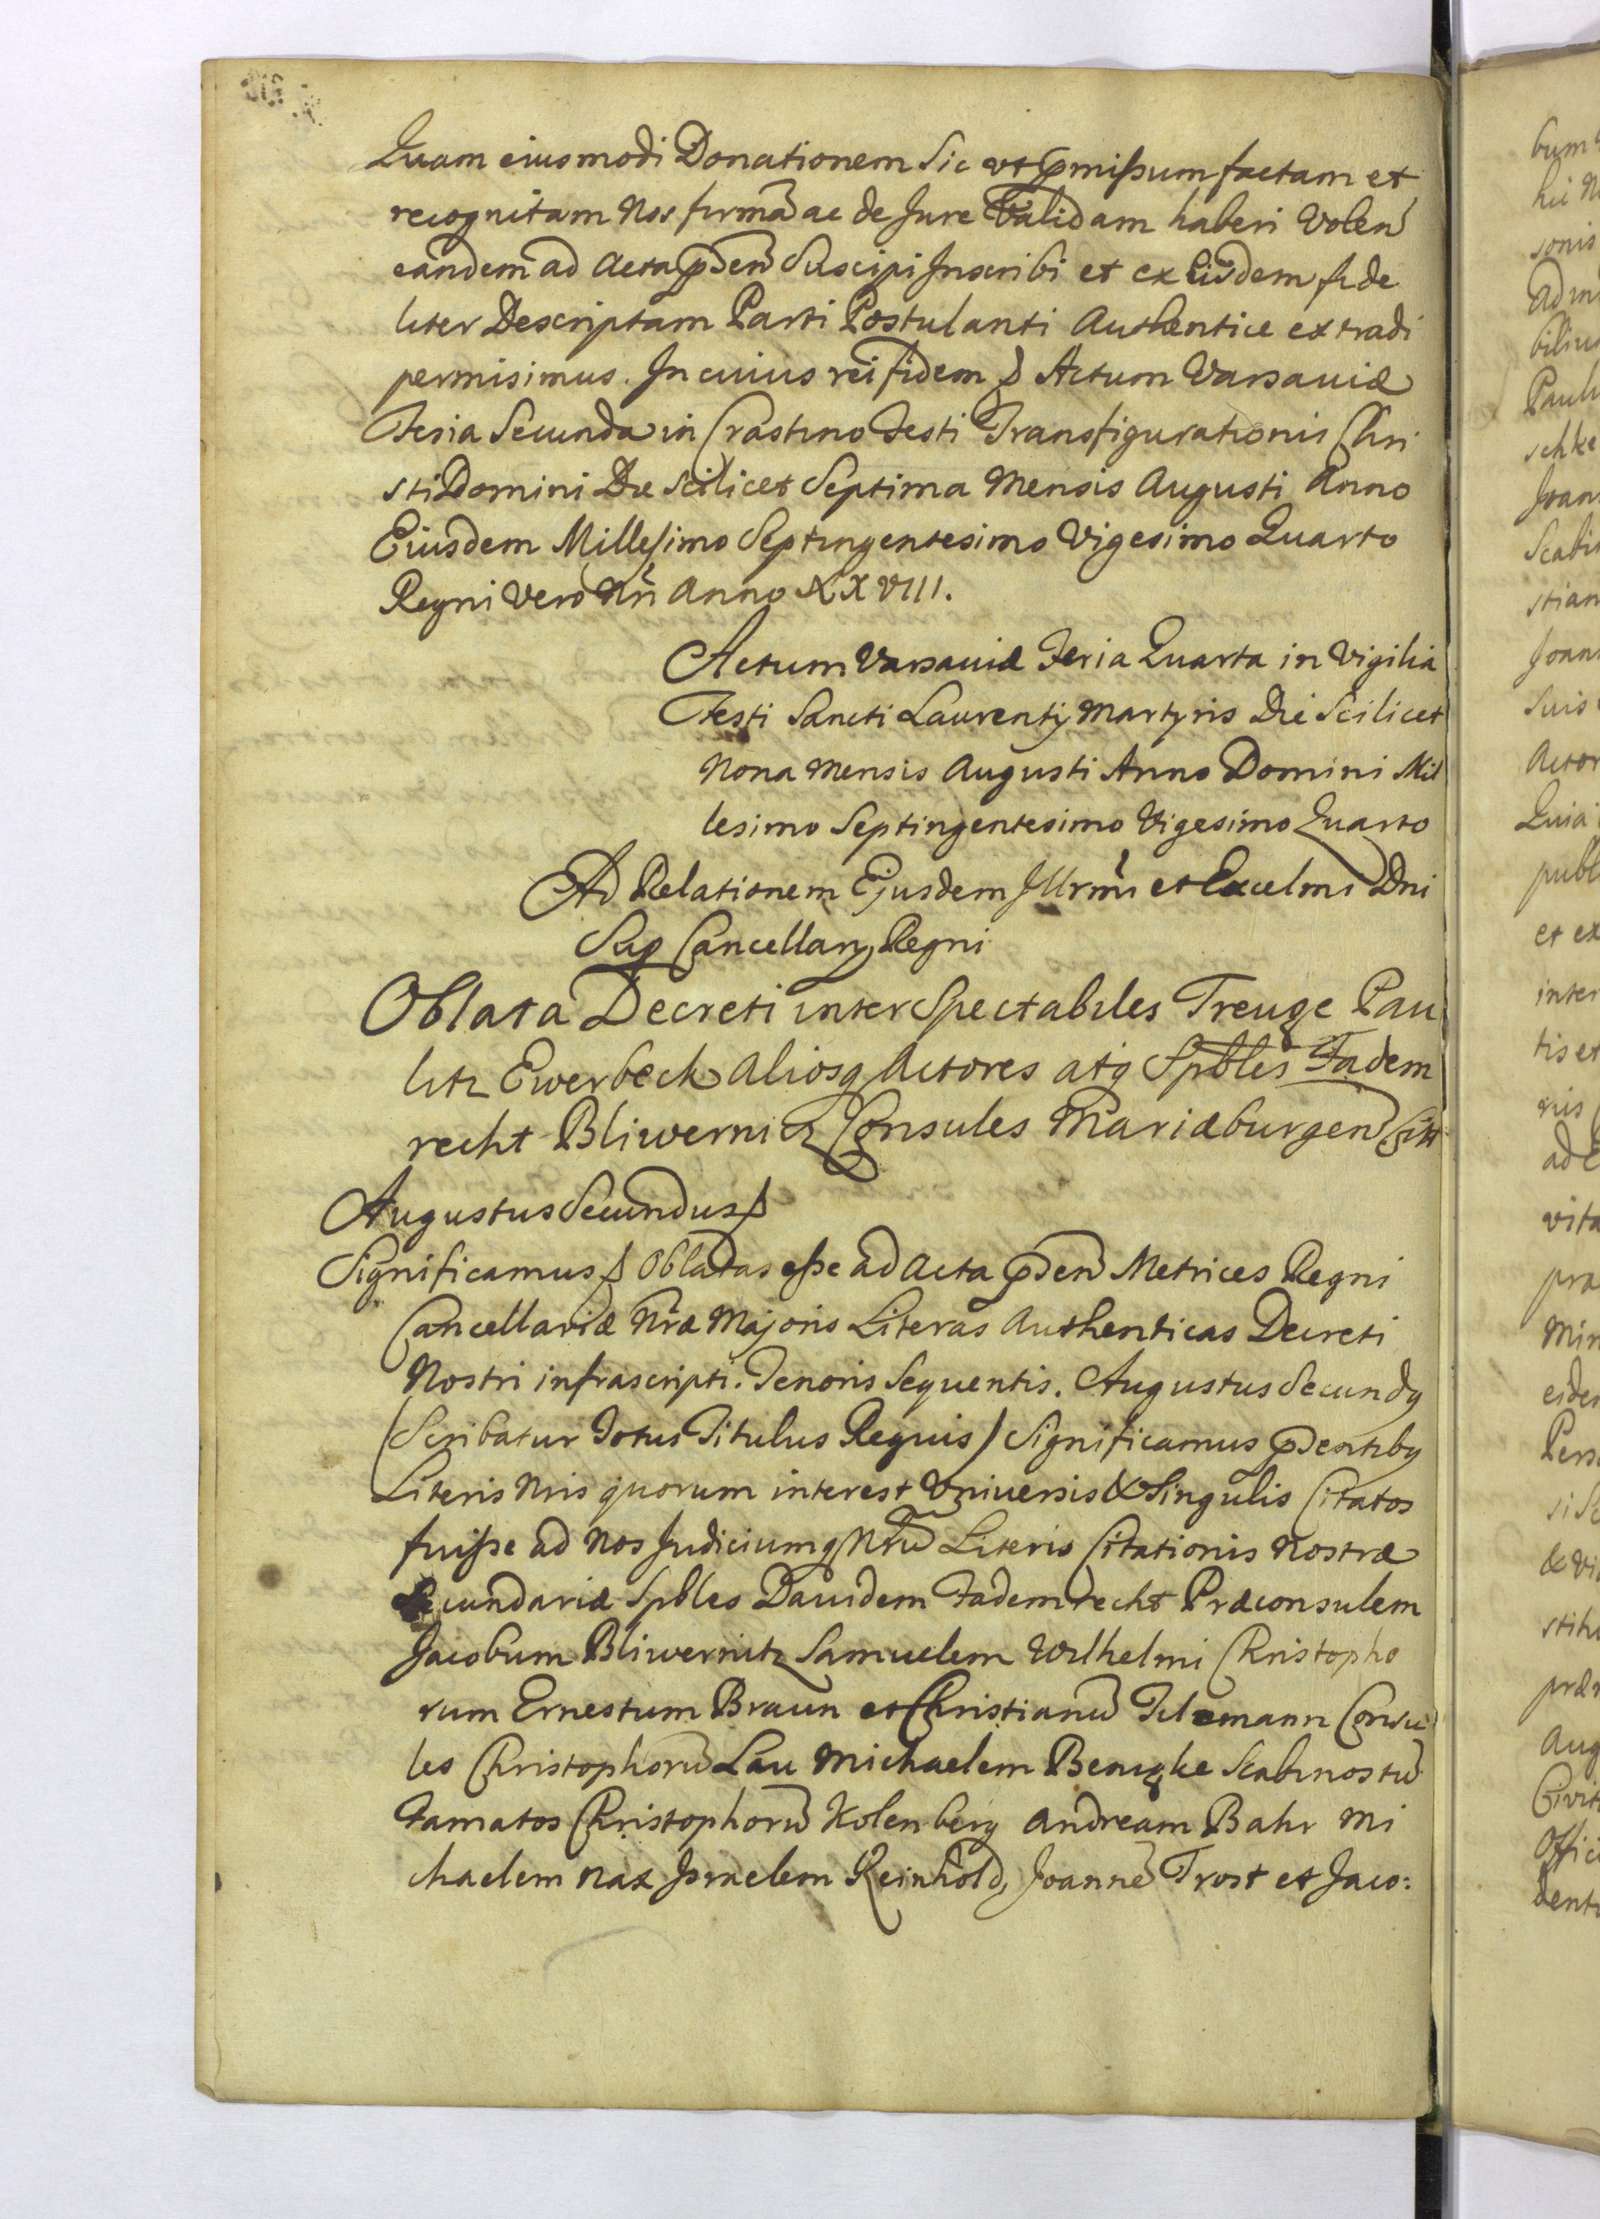 Quam eiusmodi Donationem Sic vt pmissum factam et
recognitam Nos firmã ac de Jure Validam haberi Volen
eandem ad Acta pden Suscipi Inscribi et ex Eisdem fide
liter Descriptam Parti Postulanti Authentice extradi
permisimus. In cuius rei fidem Actum Varsaviæ
Feria Secunda in Crastino Festi Transfigurationis Chri
sti Domini Die Scilicet Septima Mensis Augusti Anno
Eiusdem Millesimo Septingentesimo Vigesimo Quarto
Regni Vero Nri Anno XXVIII.
Actum Varsaviæ Feria Quarta in Vigilia
Festi Sancti Laurentij Martyris Die Scilicet
Nona Mensis Augusti Anno Domini Mil
lesimo Septingentesimo Vigesimo Quarto
Ad Relationem Ejusdem Illrmi et Excelmi Dni
Sup Cancellarij Regni
Oblata Decreti inter Spectabiles Treuge Pau
litz Ewerbeck Aliosq Actores atq Spbles Fadem
recht Bliwernitz Consules Mariæburgen Citt
Augustus Secundus
Significamus Oblatas esse ad Acta pden Metrices Regni
Cancellariæ Nræ Majoris Literas Authenticas Decreti
Nostri infrascripti. Tenoris Sequentis. Augustus Secundq
(Scribatur Totus Titulus Regius) Significamus pdentibq
Literis Nris quorum interest Vniuersis & Singulis Citatos
fuisse ad Nos Judiciumq Nrũ Literis Citationis Nostræ
Secundariæ Spbles Dauidem Fademrecht Præconsulem
Jacobum Bliwernitz Samuelem Wilhelmi Christopho
rum Ernestum Braun et Christianũ Tilemann Consu
les Christophorũ Lau Michaelem Beniqke Scabinos tũ
Famatos Christophorũ Kolenberg Andream Bahr Mi
chaelem Nax Israelem Reinhold, Joannẽ Trost et Jaco: